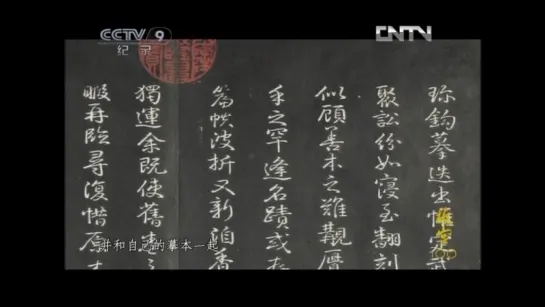 CCTV 9
纪录
CNTV
鈎摹迭出惟定武
聚訟紛如寝至翻刻
似顧善本之難覯
手之罕逢名蹟或
篇帙波折又新洎香
獨運余既使舊
暇再臨尋復惜原
并和自己的摹本一起